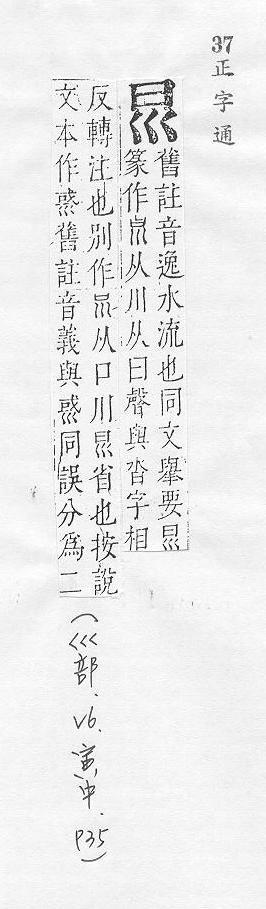 37正字通
舊註音逸水流也同文舉要
篆作从川从曰聲與沓字相
反轉注也別作从口川省也按說
文本作舊註音義與同誤分爲二
(巛部.V6.寅中.P35)